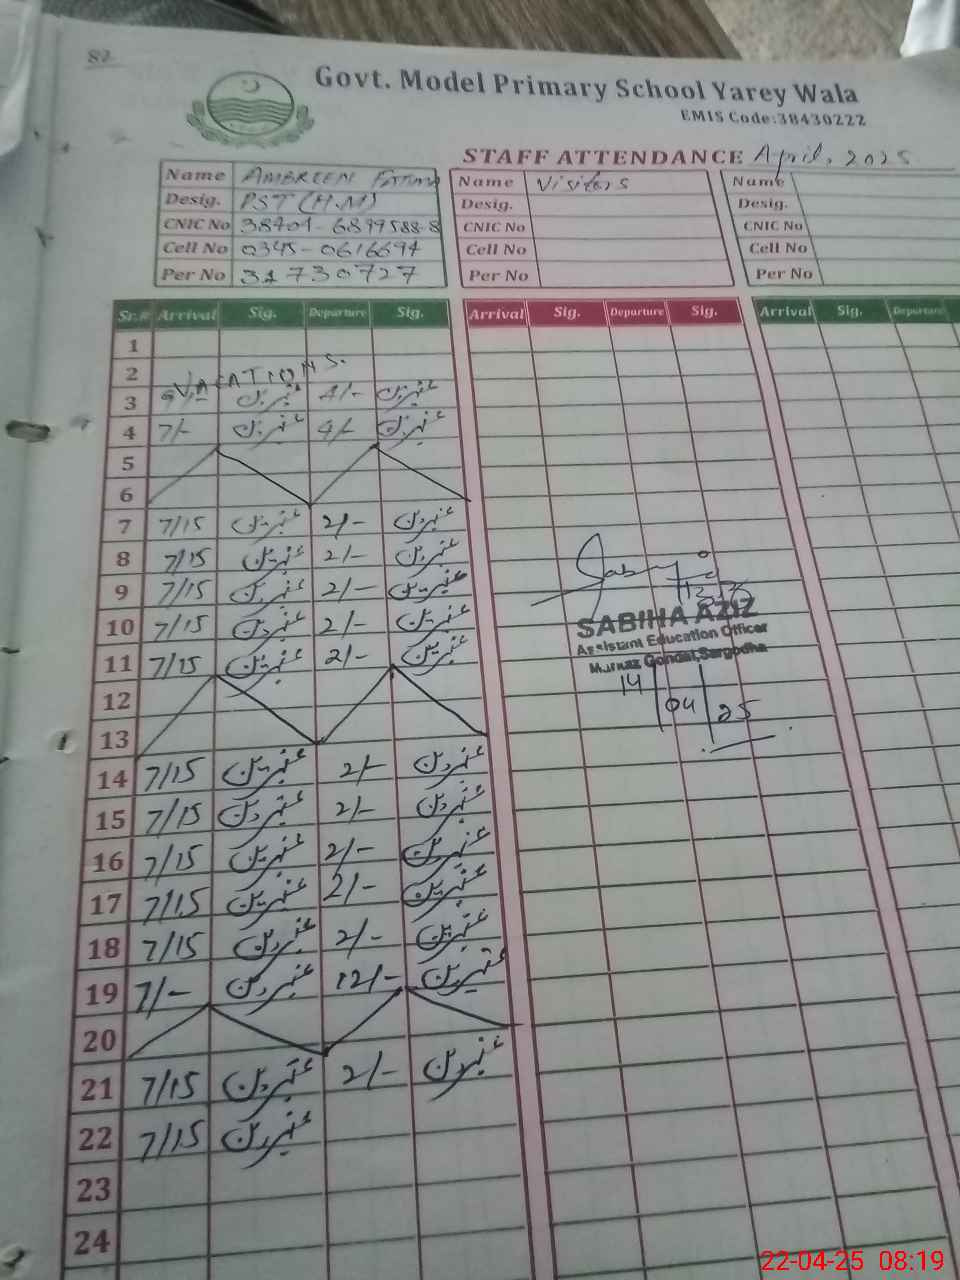 82
Govt. Model Primary School Yarey Wala
EMIS Code:38430222
STAFF ATTENDANCE April, 2025
Name AMBREEN FATIMA Name Visitors Name
Desig. PST (H.M) Desig. Desig.
CNIC No 38401-6899588-8 CNIC No CNIC No
Cell No 0345-0616694 Cell No Cell No
Per No 31730727 Per No Per No
Sr.# Arrival Sig. Departure Sig. Arrival Sig. Departure Sig. Arrival Sig. Departure
1
2 VACATIONS.
3 عنبرین 4/- عنبرین
4 7/- عنبرین 4/- عنبرین
5
6
7 7/15 عنبرین 2/- عنبرین
8 7/15 عنبرین 2/- عنبرین
9 7/15 عنبرین 2/- عنبرین
10 7/15 عنبرین 2/- عنبرین
11 7/15 عنبرین 2/- عنبرین
SABIHA AZIZ
Assistant Education Officer
Markaz Gondal, Sargodha
14/04/25
12
13
14 7/15 عنبرین 2/- عنبرین
15 7/15 عنبرین 2/- عنبرین
16 7/15 عنبرین 2/- عنبرین
17 7/15 عنبرین 2/- عنبرین
18 7/15 عنبرین 2/- عنبرین
19 7/- عنبرین 12/- عنبرین
20
21 7/15 عنبرین 2/- عنبرین
22 7/15 عنبرین
23
24
22-04-25 08:19